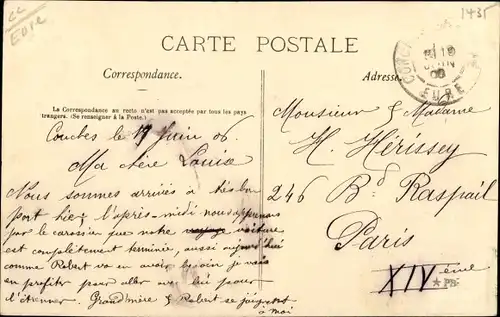 cc
Eure
1435
CARTE POSTALE
Correspondance.
Adresse
La Correspondance au recto n'est pas acceptée par tous les pays
trangers. (Se renseigner à la Poste.)
EURE
Conches le 19 Juin 06
Ma chère Louise
Nous sommes arrivés à très bon
port hier l'après-midi nous apprenons
par le carossier que notre voiture
est complètement terminée, aussi aujourd'hui
comme Robert va en avoir besoin je vais
en profiter pour aller lui pour
l'étrenner. Grand'mère & Robert se joignent
à moi
Monsieur & Madame
H. Hérissey
246 Bd Raspail
Paris
XIVème
PB